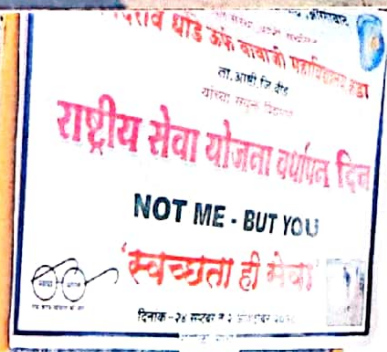 धोंडे ऊर्फ बाबाजी महाविद्यालय कडा
ता.आष्टी.जि.बीड
यांच्या संयुक्त विद्यमाने
राष्ट्रीय सेवा योजना वर्धापन दिन
NOT ME - BUT YOU
'स्वच्छता ही सेवा'
दिनांक -२४ सप्टेंबर